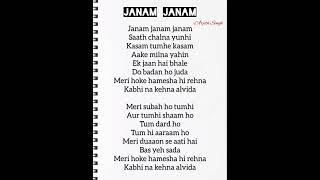 JANAM JANAM
Arijit Singh
Janam janam janam
Saath chalna yunhi
Kasam tumhe kasam
Aake milna yahin
Ek jaan hai bhale
Do badan ho juda
Meri hoke hamesha hi rehna
Kabhi na kehna alvida
Meri subah ho tumhi
Aur tumhi shaam ho
Tum dard ho
Tum hi aaraam ho
Meri duaaon se aati hai
Bas yeh sada
Meri hoke hamesha hi rehna
Kabhi na kehna alvida